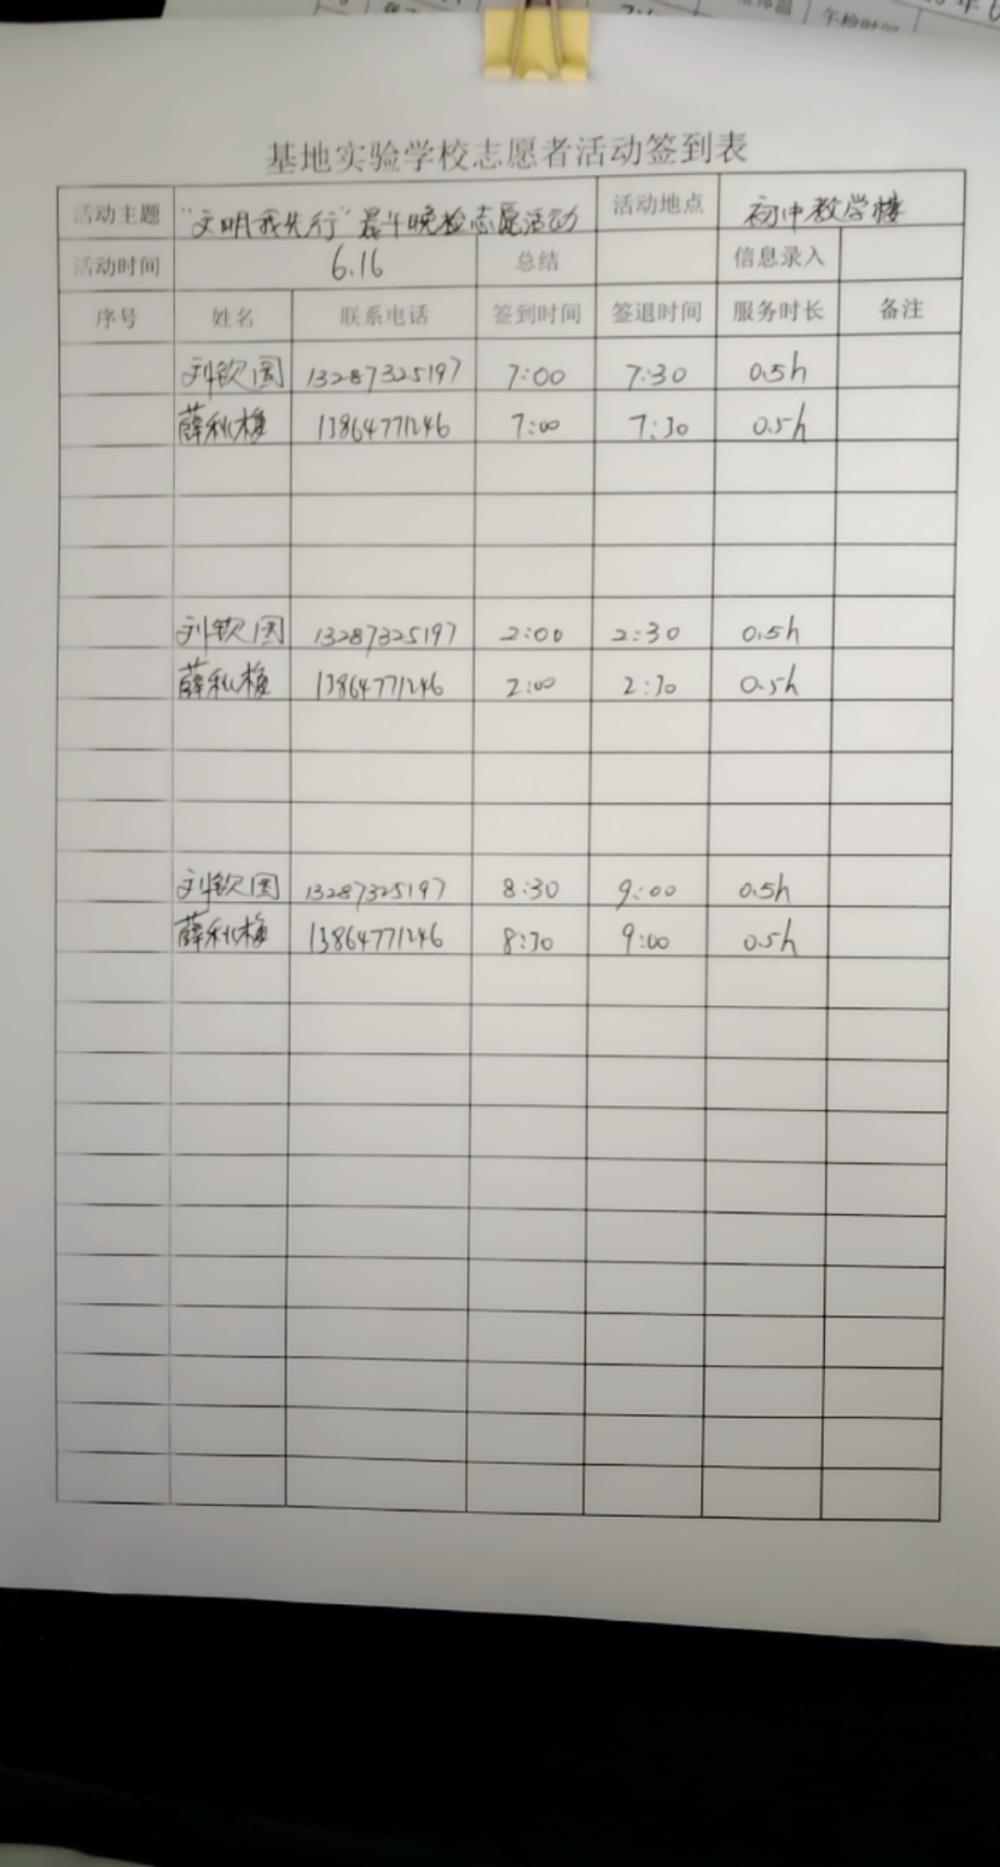 午检时间
基地实验学校志愿者活动签到表
活动主题 "文明我先行"晨午晚检志愿活动 活动地点 初中教学楼
活动时间 6.16 总结 信息录入
序号 姓名 联系电话 签到时间 签退时间 服务时长 备注
刘钦国 13287325197 7:00 7:30 0.5h
薛秋梅 13864771246 7:00 7:30 0.5h
刘钦国 13287325197 2:00 2:30 0.5h
薛秋梅 13864771246 2:00 2:30 0.5h
刘钦国 13287325197 8:30 9:00 0.5h
薛秋梅 13864771246 8:30 9:00 0.5h